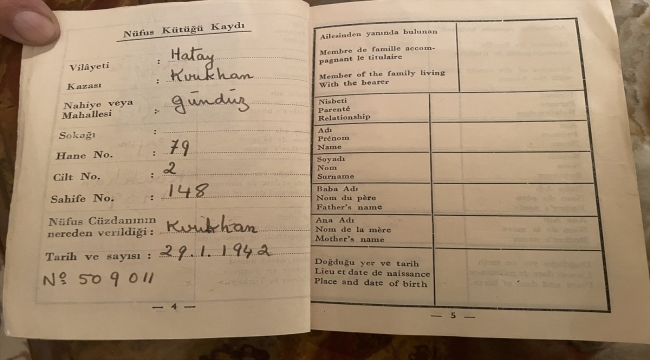 Nüfus Kütüğü Kaydı
Vilâyeti : Hatay
Kazası : Kırıkhan
Nahiye veya
Mahallesi : gündüz
Sokağı :
Hane No. : 79
Cilt No. : 2
Sahife No. : 148
Nüfus Cüzdanının
nereden verildiği : Kırıkhan
Tarih ve sayısı : 29.1.1942
Nº 509011
— 4 —
Ailesinden yanında bulunan
Membre de famille accom-
pagnant le titulaire
Member of the family living
With the bearer
Nisbeti
Parenté
Relationship
Adı
Prénom
Name
Soyadı
Nom
Surname
Baba Adı
Nom du père
Father's name
Ana Adı
Nom de la mère
Mother's name
Doğduğu yer ve tarih
Lieu et date de naissance
Place and date of birth
— 5 —